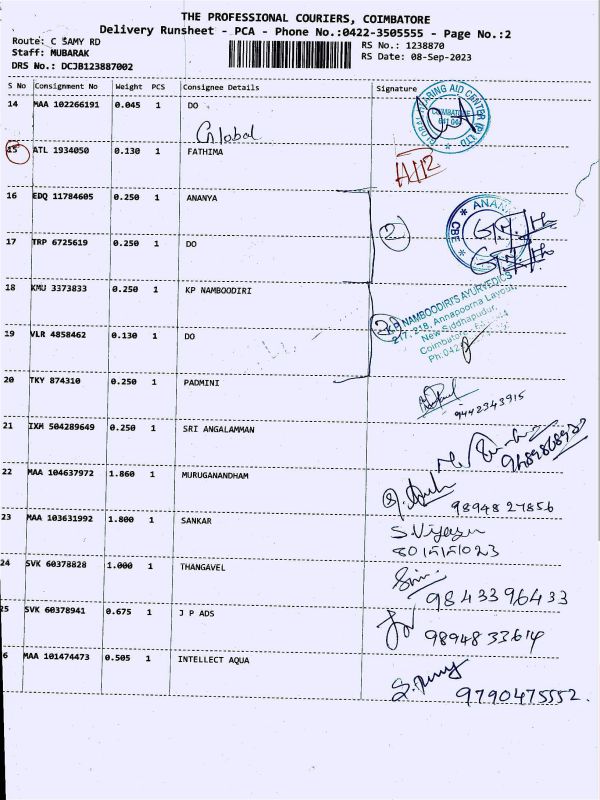 THE PROFESSIONAL COURIERS, COIMBATORE
Delivery Runsheet - PCA - Phone No.:0422-3505555 - Page No.:2
Route: C SAMY RD
Staff: MUBARAK
DRS No.: DCJB123887002
RS No.: 1238870
RS Date: 08-Sep-2023
S No Consignment No Weight PCS Consignee Details Signature
14 MAA 102266191 0.045 1 DO
Global
15 ATL 1934050 0.130 1 FATHIMA
A112
16 EDQ 11784605 0.250 1 ANANYA
2
17 TRP 6725619 0.250 1 DO
18 KMU 3373833 0.250 1 KP NAMBOODIRI
2
KP NAMBOODIRI'S AYURVEDICS
217, 218, Annapoorna Layout,
New Siddhapudur,
19 VLR 4858462 0.130 1 DO
20 TKY 874310 0.250 1 PADMINI
9442343915
21 IXM 504289649 0.250 1 SRI ANGALAMMAN
22 MAA 104637972 1.860 1 MURUGANANDHAM
9894827856
23 MAA 103631992 1.800 1 SANKAR
S. Vijaya
8015151023
24 SVK 60378828 1.000 1 THANGAVEL
9843396433
25 SVK 60378941 0.675 1 J P ADS
9894833614
6 MAA 101474473 0.505 1 INTELLECT AQUA
9790475552.